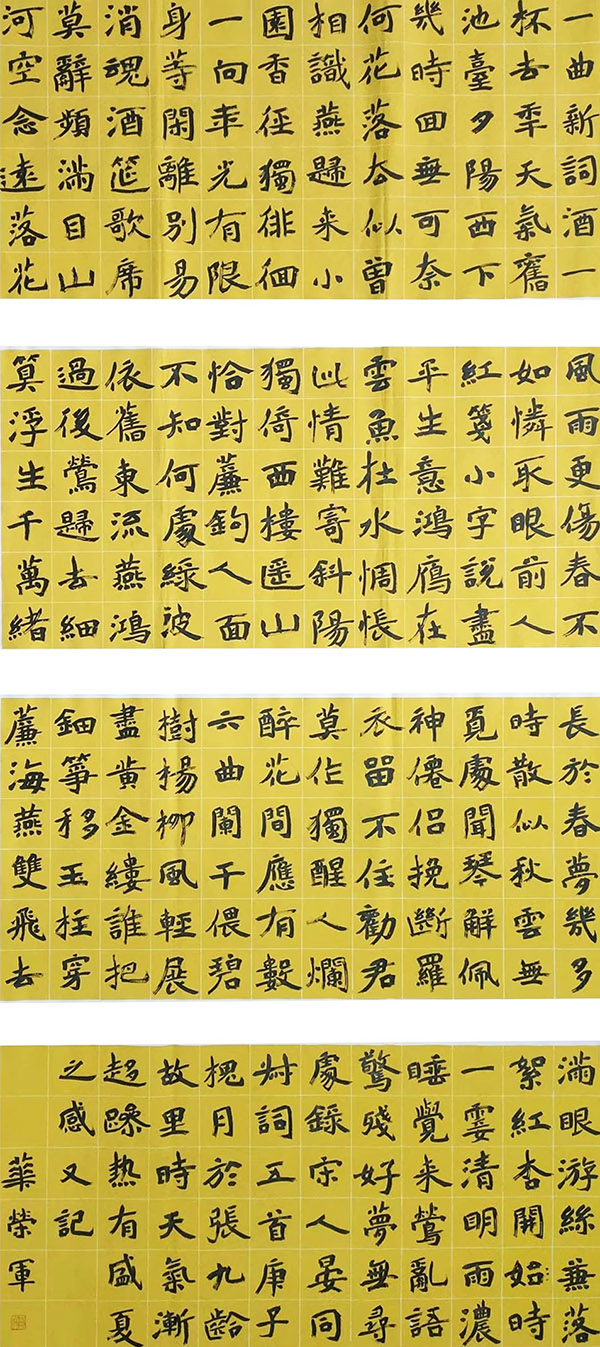 一曲新詞酒一
杯去秊天氣舊
池臺夕陽西下
幾時回無可奈
何花落去似曾
相識燕歸來小
園香徑獨徘徊
一向年光有限
身等閑離別易
消魂酒筵歌席
莫辭頻滿目山
河空念遠落花
風雨更傷春不
如憐取眼前人
紅箋小字說盡
平生意鴻鴈在
雲魚在水惆悵
此情難寄斜陽
獨倚西樓遥山
恰對簾鉤人面
不知何處綠波
依舊東流燕鴻
過後鶯歸去細
算浮生千萬緒
長於春夢幾多
時散似秋雲無
覓處聞琴解佩
神僊侶挽斷羅
衣留不住勸君
莫作獨醒人爛
醉花間應有數
六曲闌干偎碧
樹楊柳風輕展
盡黃金縷誰把
鈿箏移玉柱穿
簾海燕雙飛去
滿眼游絲兼落
絮紅杏開始時
一霎清明雨濃
睡覺來鶯亂語
驚殘好夢無尋
處錄宋人晏同
叔詞五首庚子
槐月於張九齡
故里時天氣漸
趨躁热有盛夏
之感又記
華榮軍